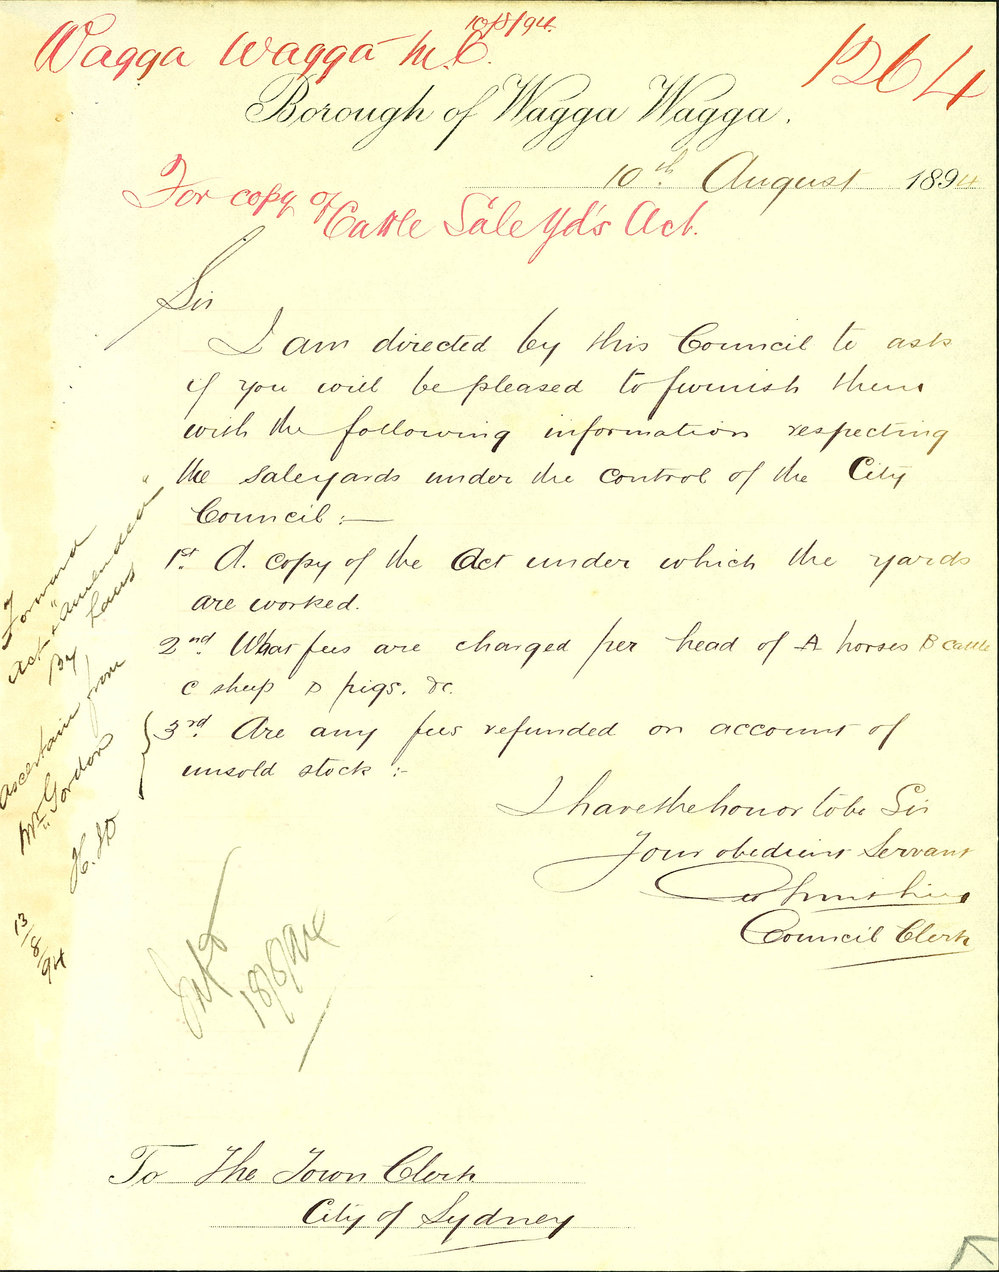 10/8/94.
Wagga Wagga M.C.
1264
Borough of Wagga Wagga.
10th. August 1894
For copy of
Cattle Sale Yds Act.
Sir
I am directed by this Council to ask
if you will be pleased to furnish them
with the following information respecting
the saleyards under the control of the City
Council:—
1st. A. copy of the Act under which the yards
are worked.
2nd. What fees are charged per head of A horses B cattle
C sheep D pigs. &c.
3rd. Are any fees refunded on account of
unsold stock :-
I have the honor to be Sir
Your obedient Servant
Council Clerk
Forward
Act & "amended"
By Laws
Ascertain from
Mr. Gordon
13/8/94
To The Town Clerk
City of Sydney